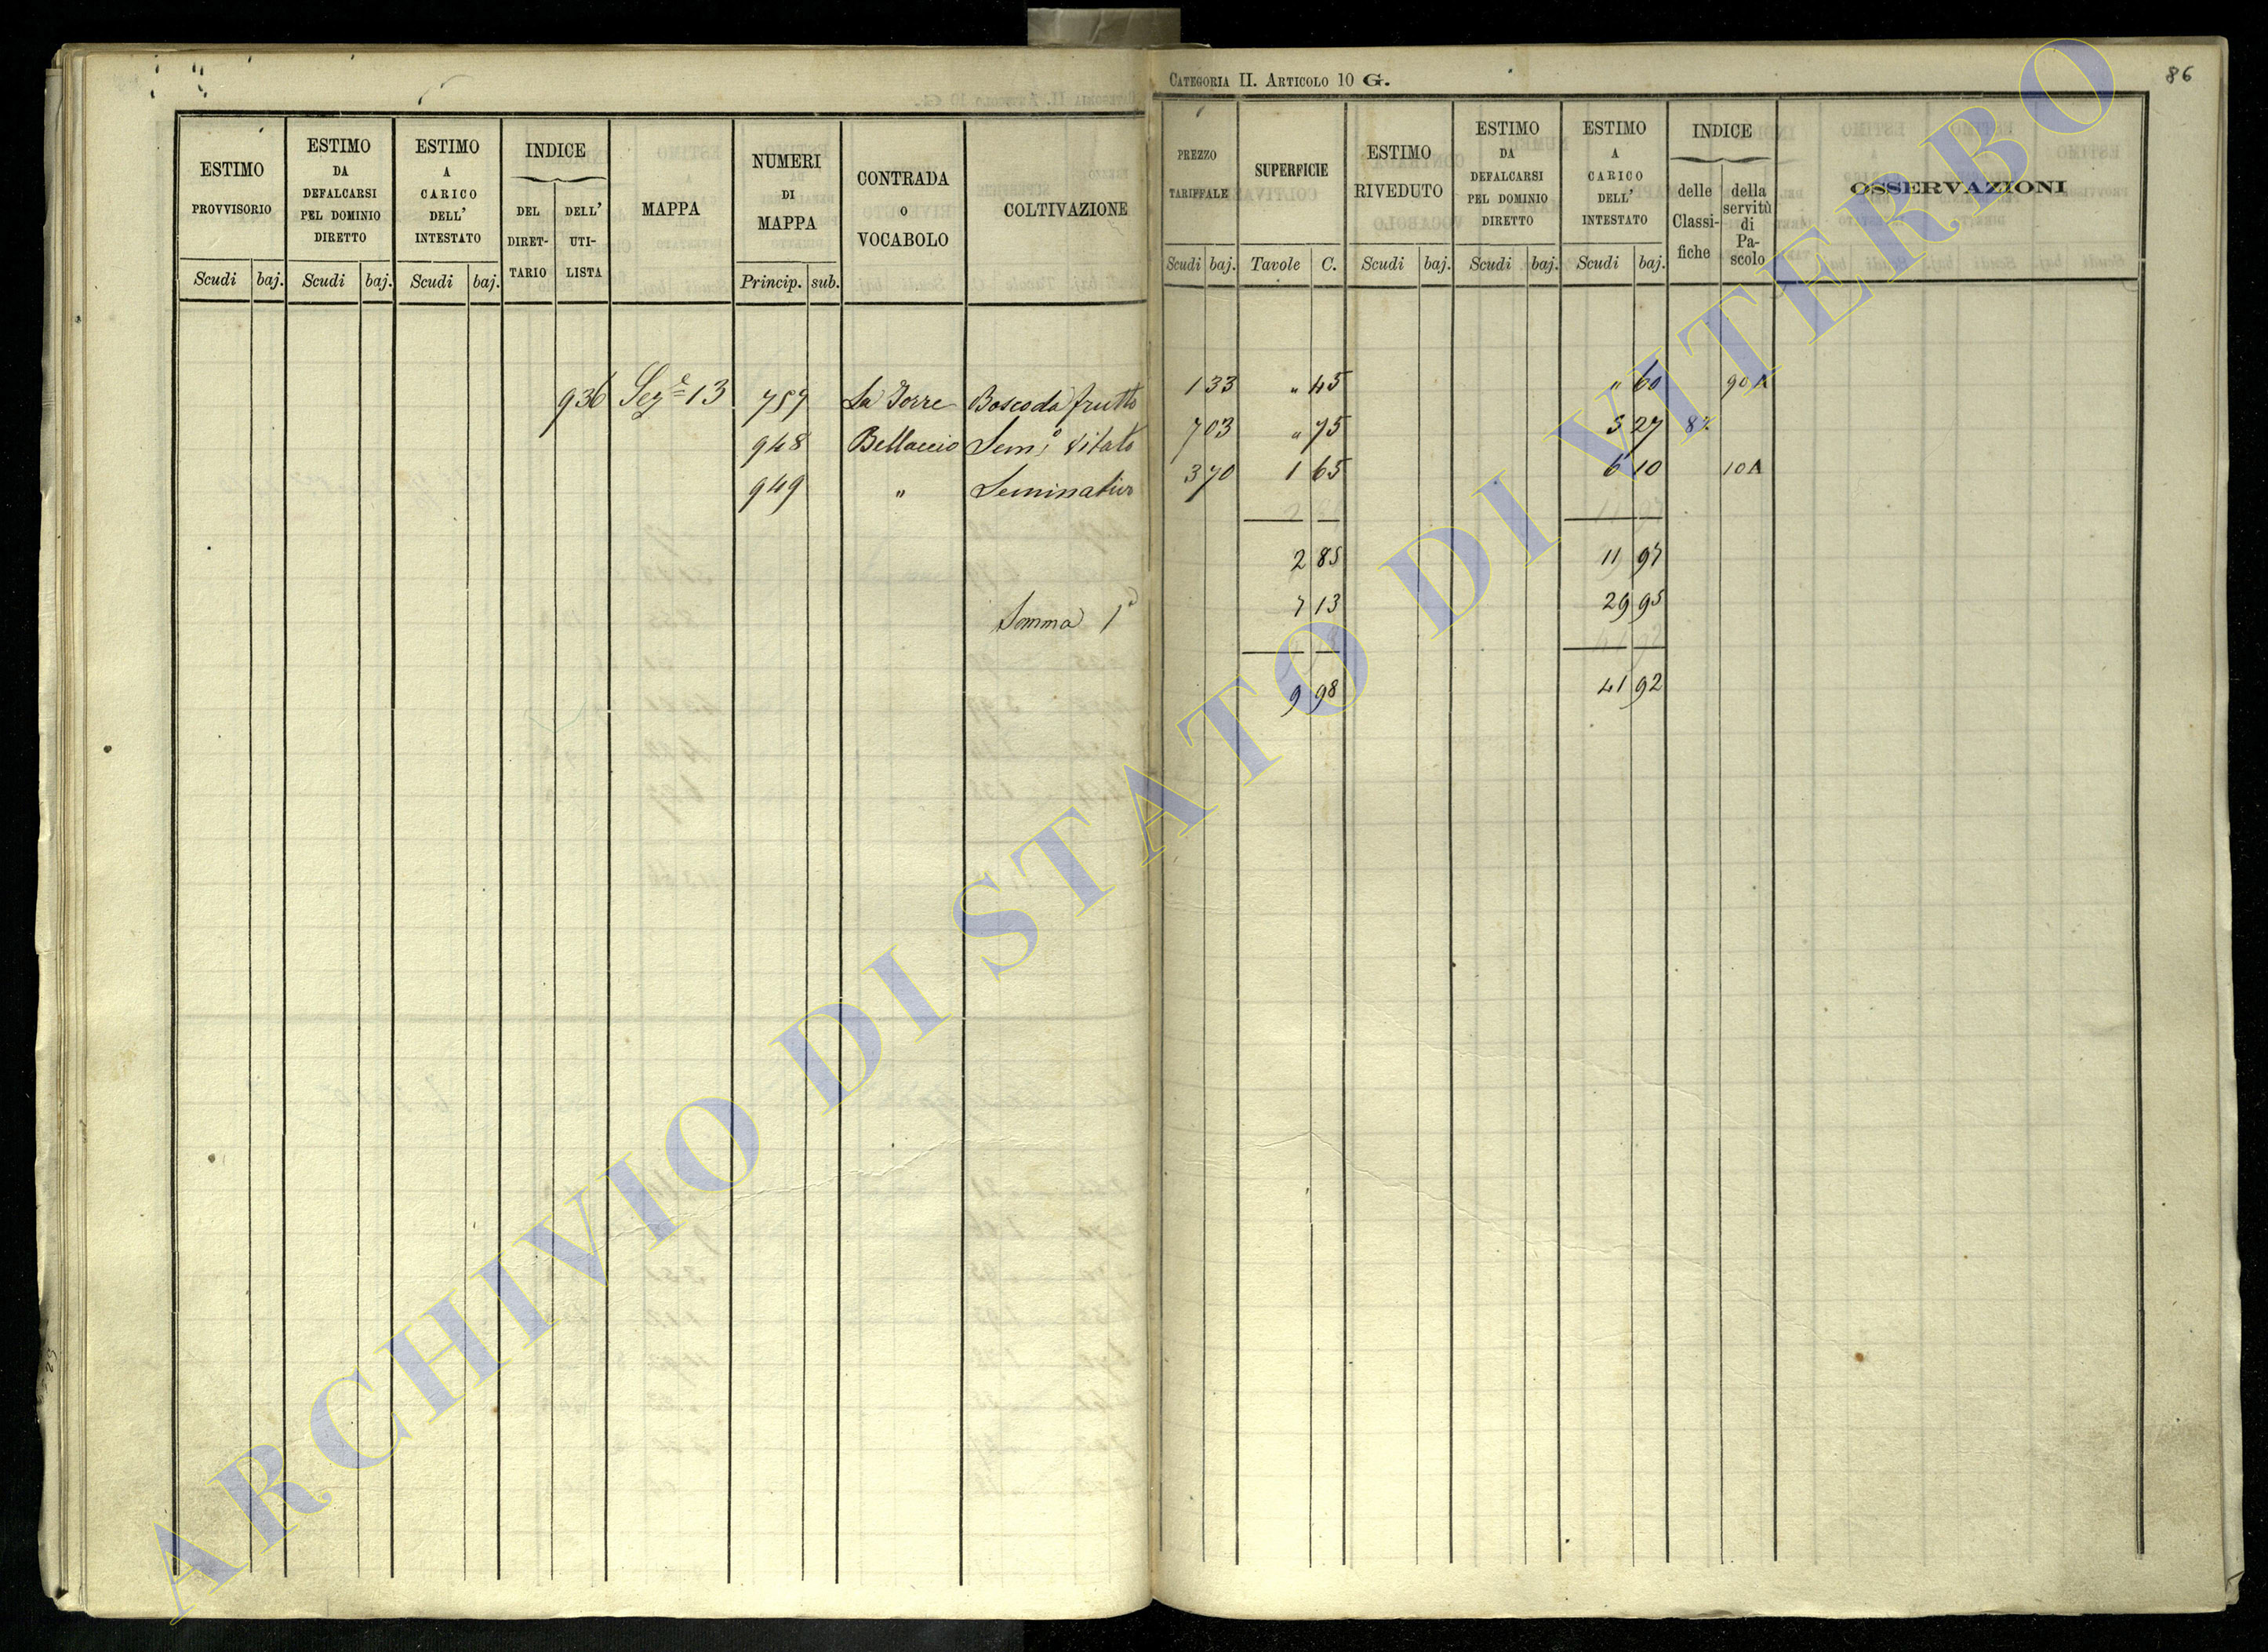 CATEGORIA II. ARTICOLO 10 G.
86
ESTIMO PROVVISORIO
Scudi baj.
ESTIMO DA DEFALCARSI PEL DOMINIO DIRETTO
Scudi baj.
ESTIMO A CARICO DELL' INTESTATO
Scudi baj.
INDICE
DEL DIRET-TARIO
DELL' UTI-LISTA
MAPPA
NUMERI DI MAPPA
Princip. sub.
CONTRADA O VOCABOLO
COLTIVAZIONE
PREZZO TARIFFALE
Scudi baj.
SUPERFICIE
Tavole C.
ESTIMO RIVEDUTO
Scudi baj.
ESTIMO DA DEFALCARSI PEL DOMINIO DIRETTO
Scudi baj.
ESTIMO A CARICO DELL' INTESTATO
Scudi baj.
INDICE
delle Classi-fiche
della servitù di Pa-scolo
OSSERVAZIONI
936 Sez.e 13 757 La Torre Bosco da frutto 1 33 " 45 " 60 90 A
948 Bellaccio Sem.o Vitato 7 03 " 75 5 27 87
949 " Seminativo 3 70 1 65 6 10 10 A
2 85 11 97
Somma 1a 7 13 29 95
9 98 41 92
ARCHIVIO DI STATO DI VITERBO